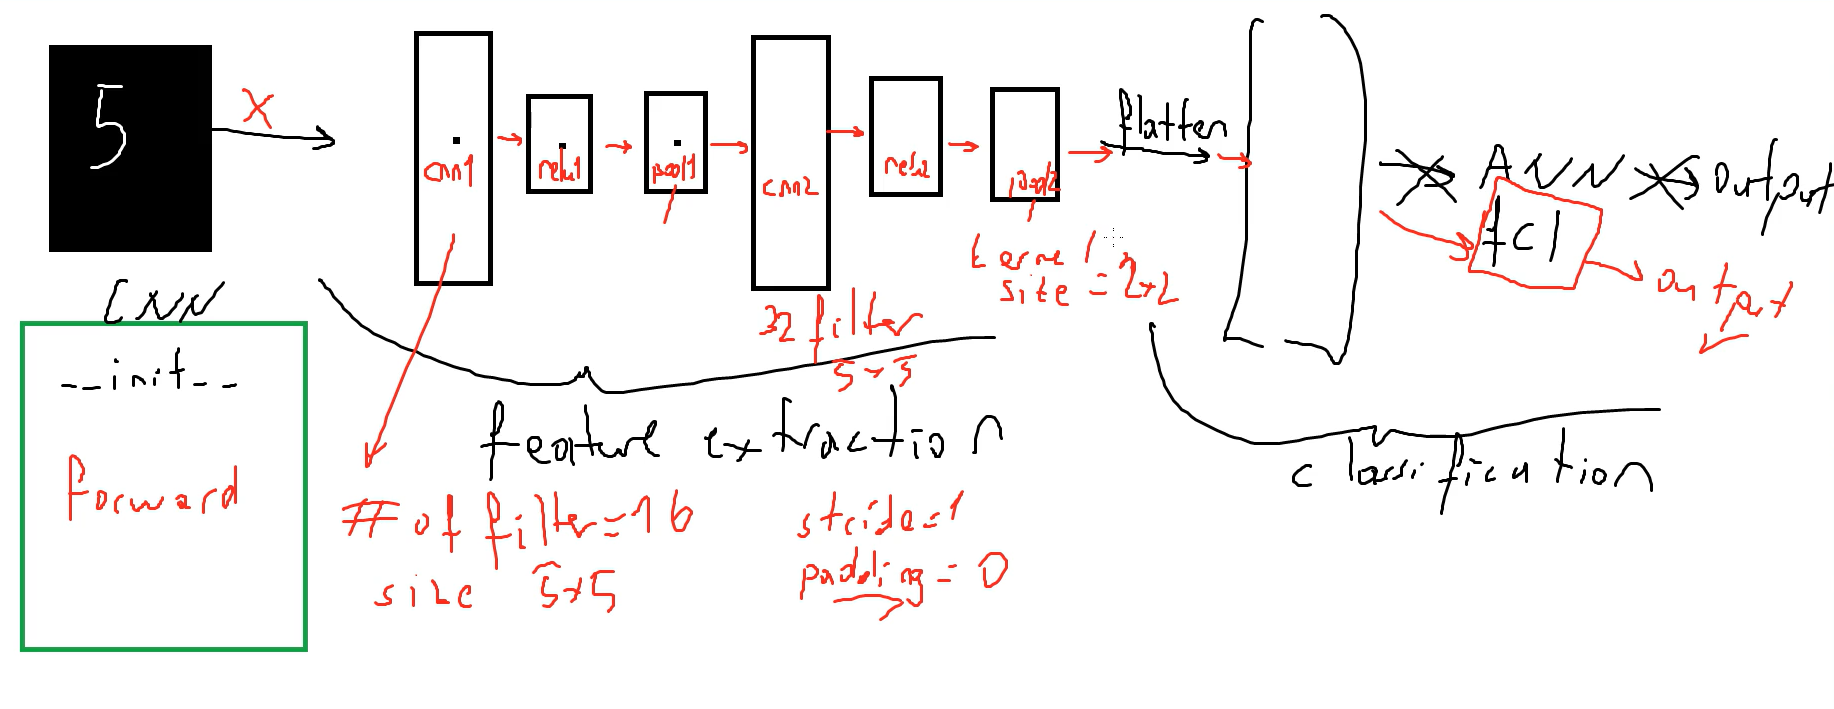 5
X
cnn1
relu1
pool1
cnn2
relu2
pool2
flatten
ANN
output
fc1
output
kernel
size = 2x2
CNN
__init__
forward
32 filter
5x5
feature extraction
classification
# of filter = 16
size 5x5
stride = 1
padding = 0